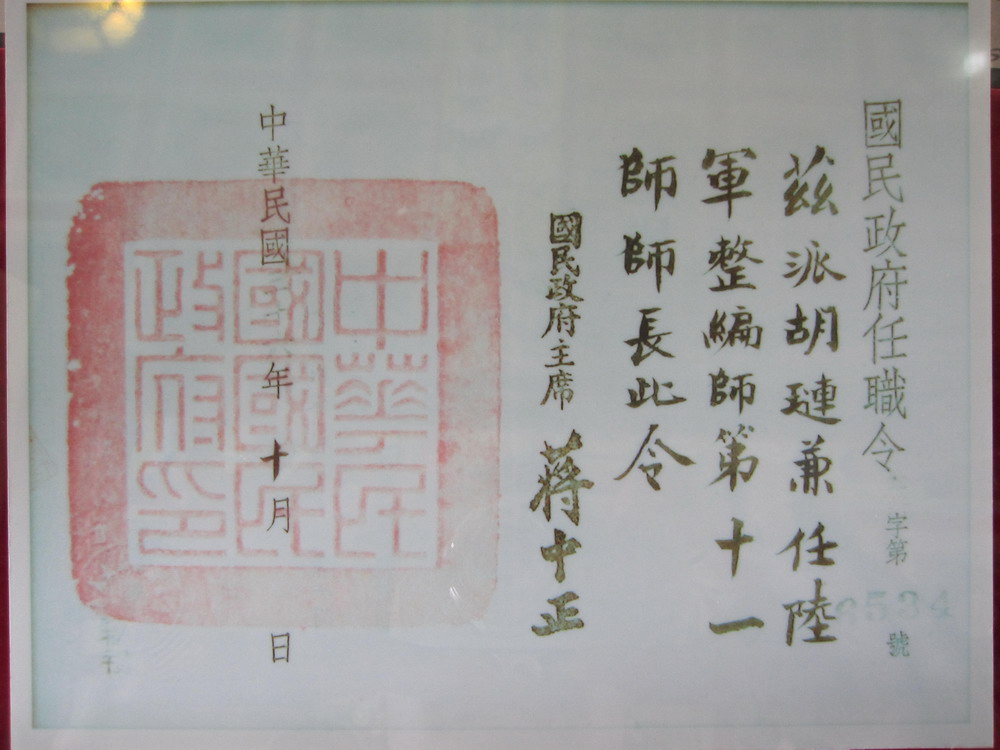 國民政府任職令
字第 534 號
茲派胡璉兼任陸
軍整編師第十一
師師長此令
國民政府主席 蔣中正
中華民國 年十月 日
中華民
國國民
政府印